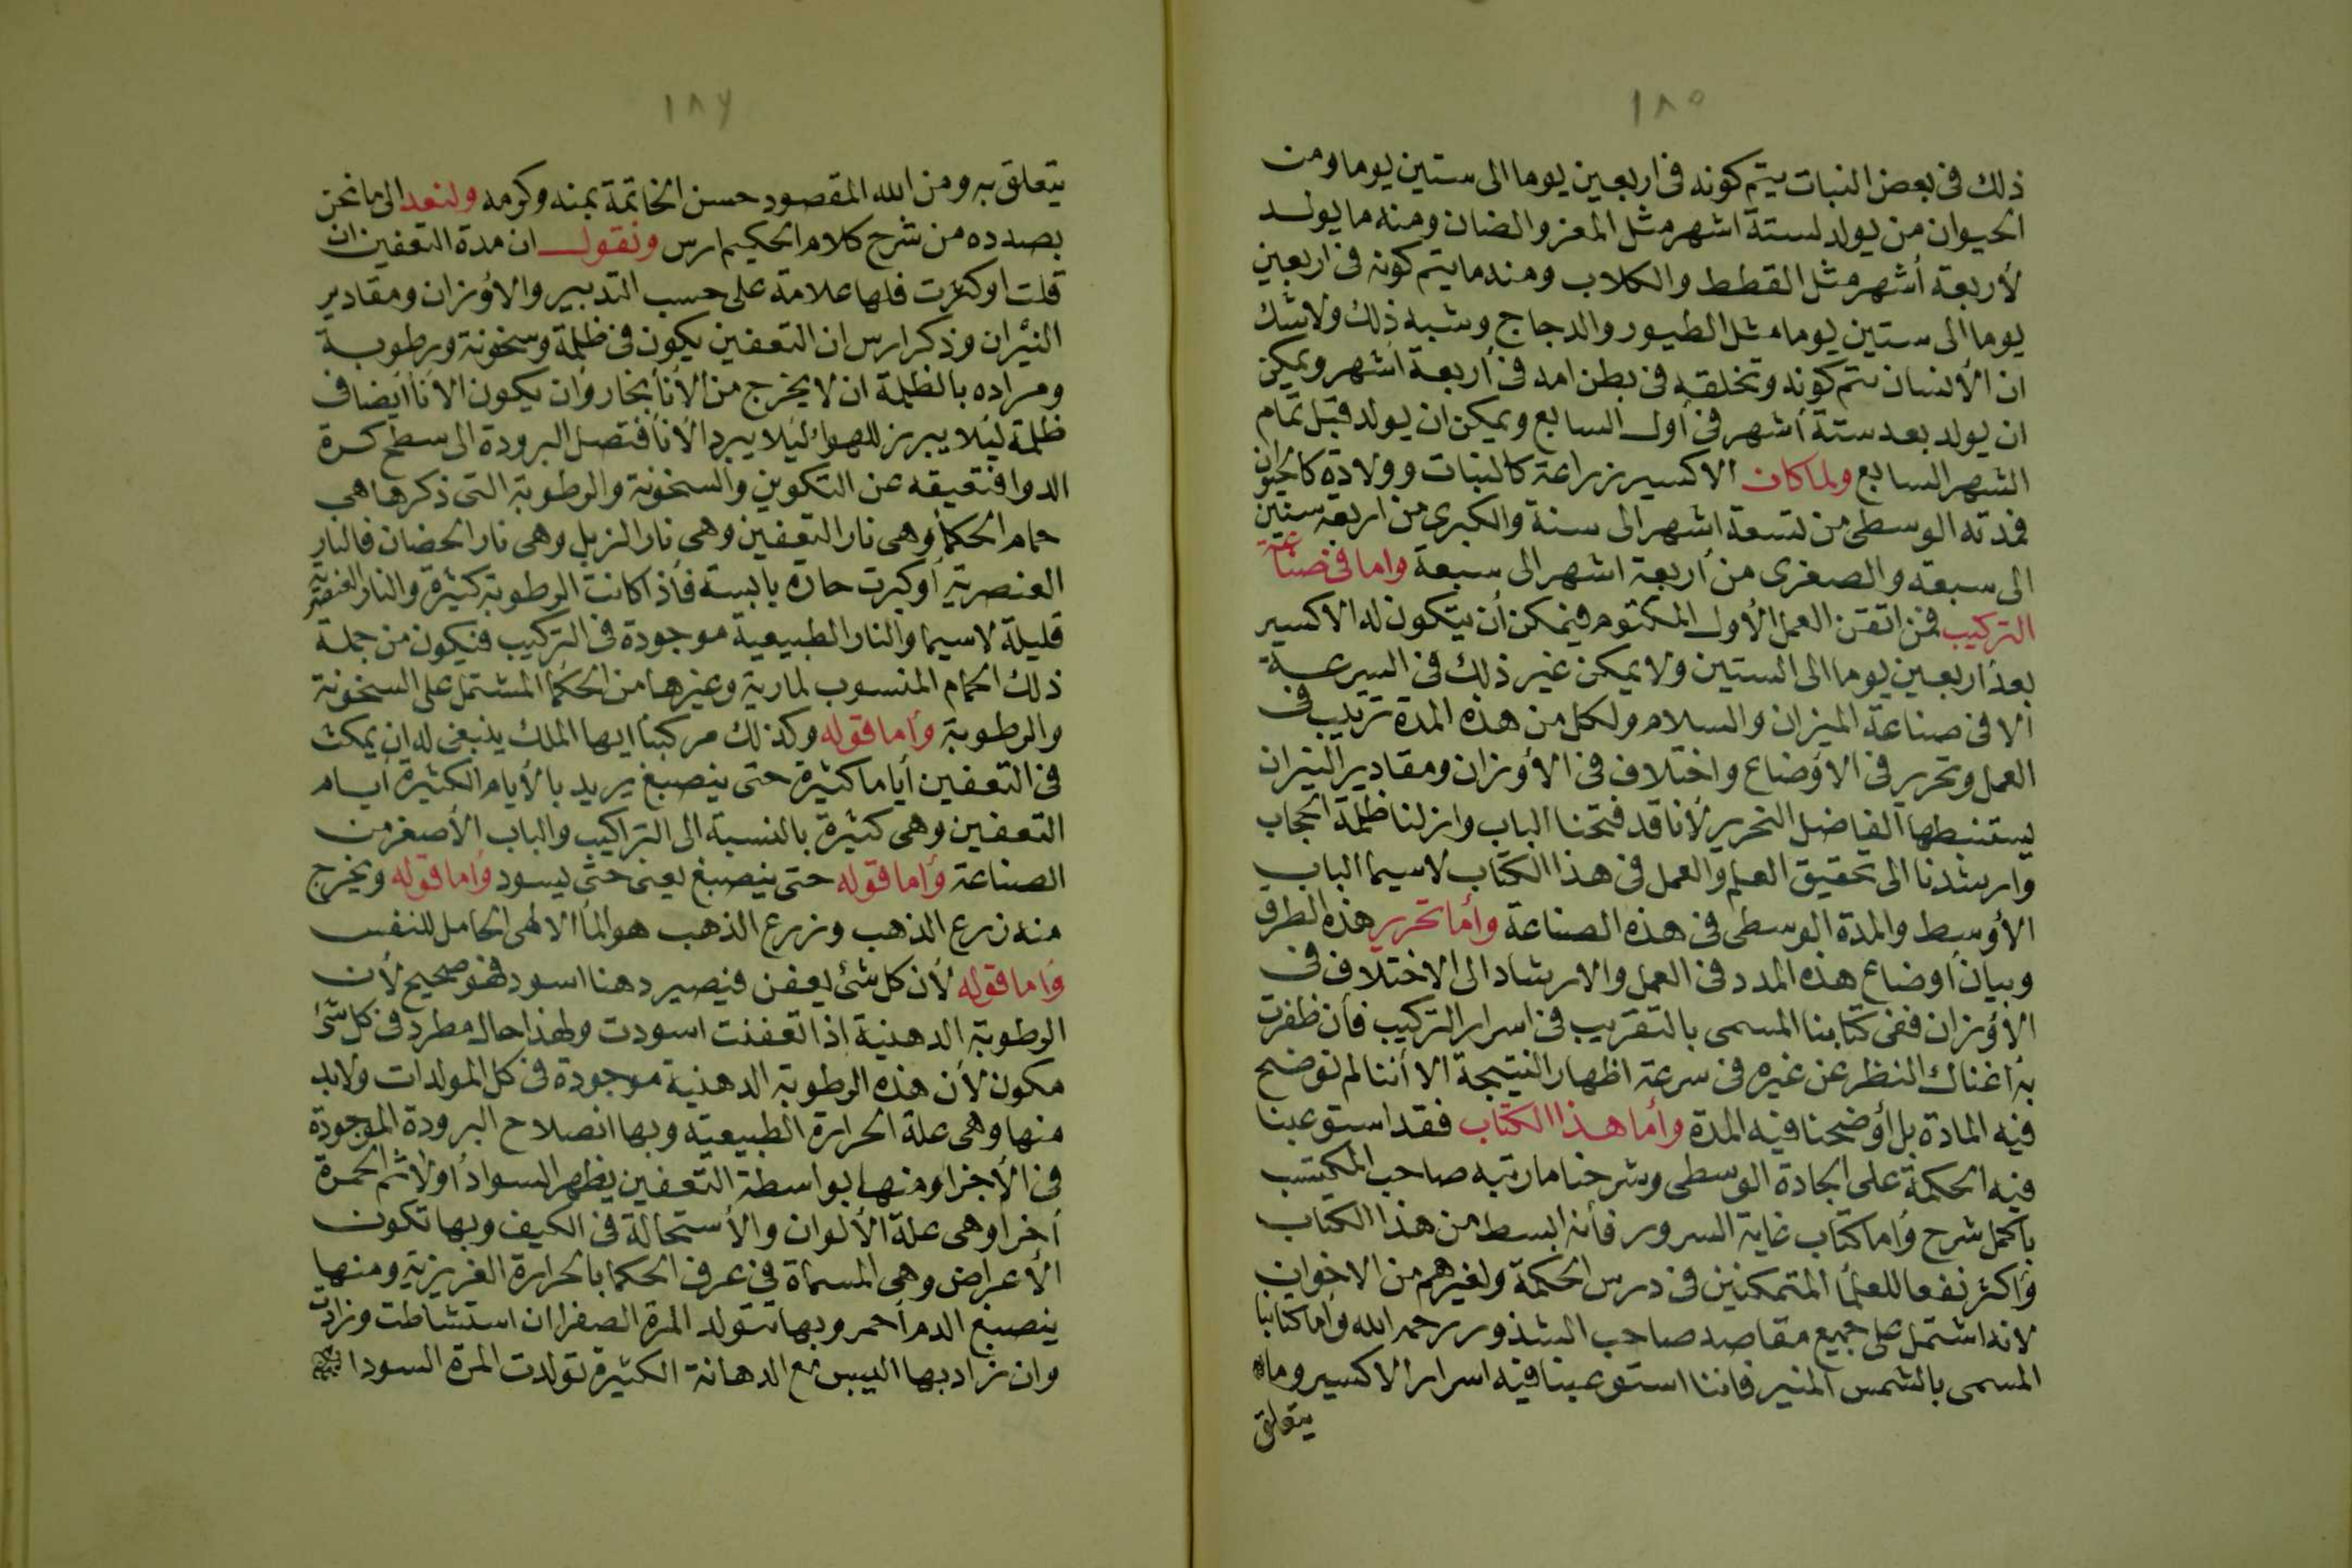 ١٨٥
ذلك فى بعض النبات يتم كونه فى اربعين يوما الى ستين يوما ومن
الحيوان من يولد لستة اشهر مثل المعز والضان ومنه ما يولد
لأربعة أشهر مثل القطط والكلاب ومنه ما يتم كونه فى اربعين
يوما الى ستين يوما مثل الطيور والدجاج وشبه ذلك ولا شك
ان الأنسان يتم كونه وتخلقه فى بطن امه فى أربعة أشهر ويمكن
ان يولد بعد ستة أشهر فى أول السابع ويمكن ان يولد قبل تمام
الشهر السابع ولما كان الاكسير زراعة كالنبات وولادة كالحيوان
فمدته الوسطى من تسعة اشهر الى سنة والكبرى من اربعة سنين
الى سبعة والصغرى من أربعة اشهر الى سبعة واما فى صناعة
التركيب فمن اتقن العمل الأول المكتوم فيمكن أن يتكون له الاكسير
بعد اربعين يوما الى الستين ولا يمكن غير ذلك فى السرعة
الا فى صناعة الميزان والسلام ولكل من هذه المدة ترتيب فى
العمل وتحرير فى الاؤضاع واختلاف فى الأؤزان ومقادير النيران
يستنبطها الفاضل النحرير لأنا قد فتحنا الباب وازلنا ظلمة الحجاب
وارشدنا الى تحقيق العلم والعمل فى هذا الكتاب لا سيما الباب
الأوسط والمدة الوسطى فى هذه الصناعة وأما تحرير هذه الطرق
وبيان أوضاع هذه المدد فى العمل والارشاد الى الاختلاف فى
الأؤزان ففى كتابنا المسمى بالتقريب فى اسرار التركيب فأن ظفرت
به أغناك النظر عن غيره فى سرعة اظهار النتيجة الا أننا لم نوضح
فيه المادة بل أوضحنا فيه المدة وأما هذا الكتاب فقد استوعبنا
فيه الحكمة على الجادة الوسطى وشرحنا ما رتبه صاحب المكتسب
باكمل شرح وأما كتاب غاية السرور فأنه ابسط من هذا الكتاب
وأكثر نفعا للعلمأ المتمكنين فى درس الحكمة ولغيرهم من الاخوان
لانه اشتمل على جميع مقاصد صاحب الشذور رحمه الله وأما كتابنا
المسمى بالشمس المنير فاننا استوعبنا فيه اسرار الاكسير وما
يتعلق
١٨٦
يتعلق به ومن الله المقصود حسن الخاتمة بمنه وكرمه ولنعد الى ما نحن
بصدده من شرح كلام الحكيم ارس ونقول ان مدة التعفين ان
قلت او كثرت فلها علامة على حسب التدبير والاؤزان ومقادير
النيران وذكر ارس ان التعفين يكون فى ظلمة وسخونة ورطوبة
ومراده بالظلمة ان لا يخرج من الأنأ بخار وأن يكون الانأ أيضا فى
ظلمة لئلا يبرز للهواء لئلا يبرد الأنأ فتصل البرودة الى سطح كرة
الدوا فتعيقه عن التكوين والسخونة والرطوبة التى ذكرها هى
حمام الحكمأ وهى نار التعفين وهى نار الزبل وهى نار الحضان فالنار
العنصرية أوكبرت حارة يابسة فأذا كانت الرطوبة كثيرة والنار العنصرية
قليلة لا سيما والنار الطبيعية موجودة فى التركيب فنكون من جملة
ذلك الحمام المنسوب لمارية وغيرها من الحكمأ المشتمل على السخونة
والرطوبة وأما قوله وكذلك مركبنأ ايها الملك ينبغى له ان يمكث
فى التعفين أياما كثيرة حتى ينصبغ يريد بالأيام الكثيرة أيام
التعفين وهى كثيرة بالنسبة الى التراكيب والباب الأصغر من
الصناعة وأما قوله حتى ينصبغ يعنى حتى يسود وأما قوله ويخرج
منه زرع الذهب وزرع الذهب هو المأ الالهى الحامل للنفس
وأما قوله لأن كل شئ يعفن فيصير دهنا اسود فهو صحيح لأن
الرطوبة الدهنية اذا تعفنت اسودت ولهذا حال مطرد فى كل شئ
مكون لأن هذه الرطوبة الدهنية موجودة فى كل المولدات ولابد
منها وهى علة الحرارة الطبيعية وبها انصلاح البرودة الموجودة
فى الأجزا ومنها بواسطة التعفين يظهر السواد أولا ثم الحمرة
أخرا وهى علة الألوان والأستحالة فى الكيف وبها تكون
الأعراض وهى المسماة فى عرف الحكما بالحرارة الغريزية ومنها
ينصبغ الدم أحمر وبها تتولد المرة الصفرا ان استشاطت وزادت
وان زاد بها اليبس مع الدهانة الكثيرة تولدت المرة السودا